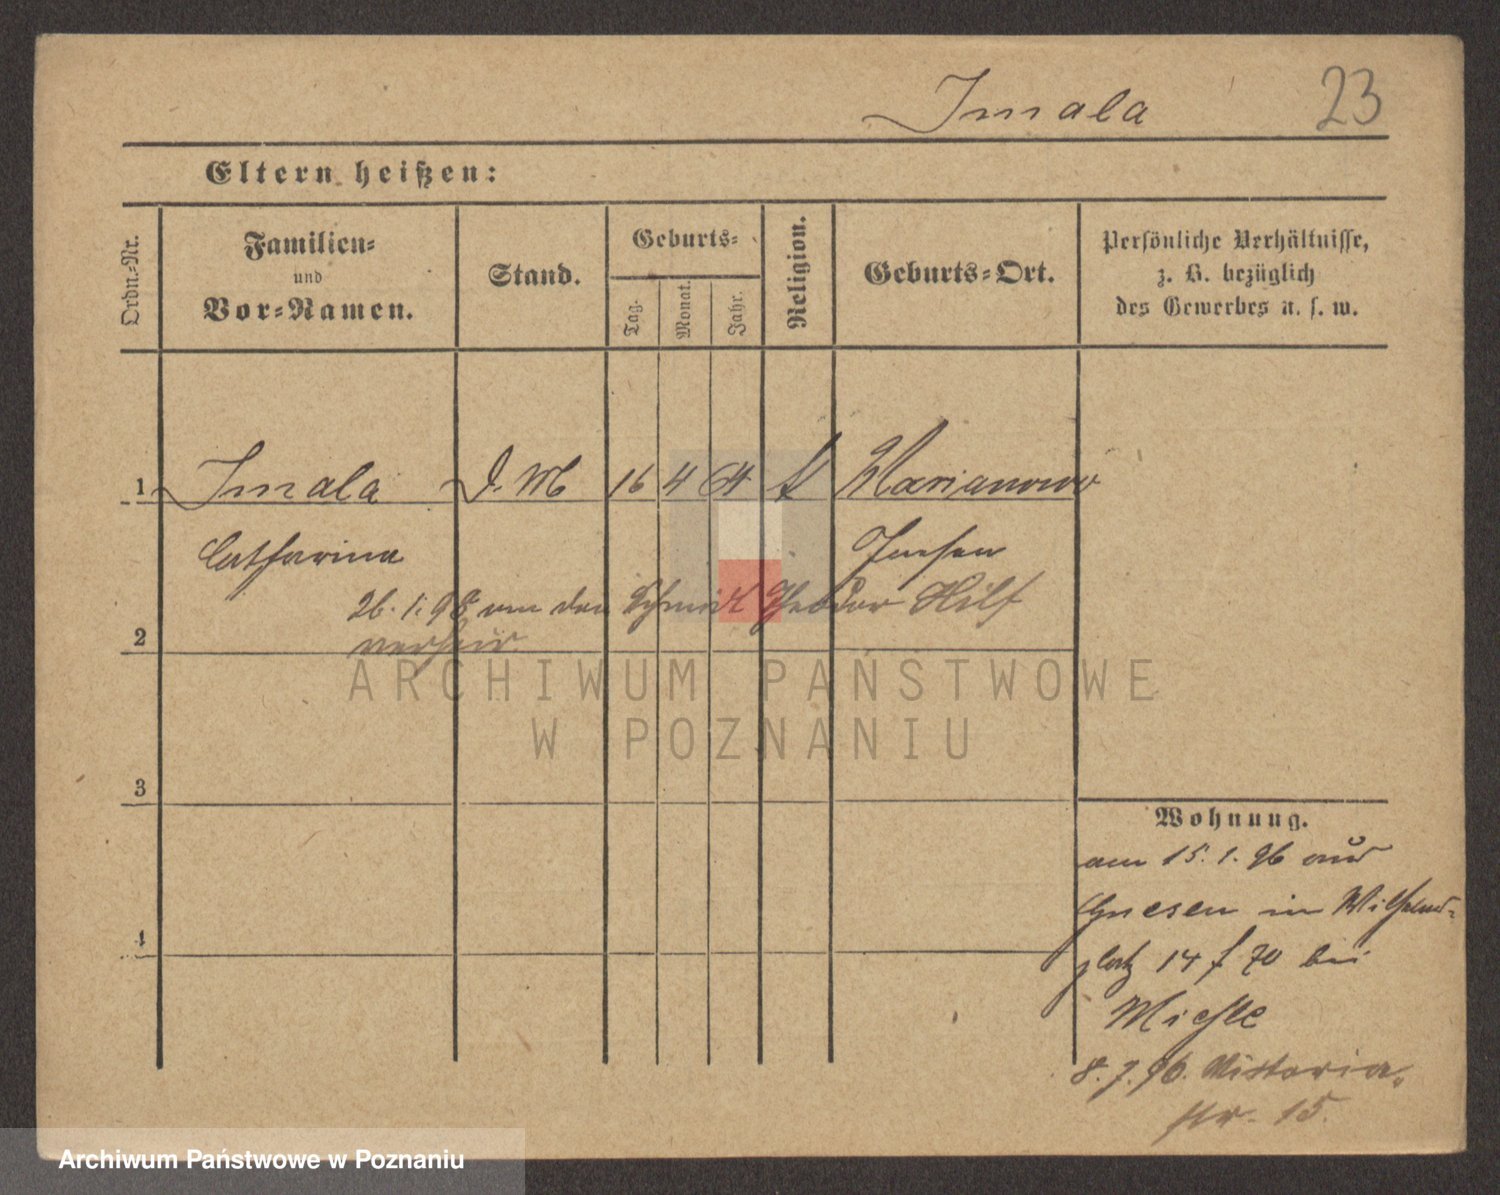 Smala 23
Eltern heißen:
Ordn.-Nr.
Familien-
und
Vor-Namen.
Stand.
Geburts-
Tag.
Monat.
Jahr.
Religion.
Geburts-Ort.
Persönliche Verhältnisse,
z. B. bezüglich
des Gewerbes u. s. w.
1 Smala D. M 16 4 k Marianowo
Catharina
26. 1. 98 an den Schmidt Theodor Hilf
verheir.
2
3
4
Wohnung.
am 15. 1. 96 aus
Gnesen in Wilhelms-
platz 14 f 70 bei
Miehle
8. 7. 96. Viktoria-
str. 15.
ARCHIWUM PAŃSTWOWE
W POZNANIU
Archiwum Państwowe w Poznaniu